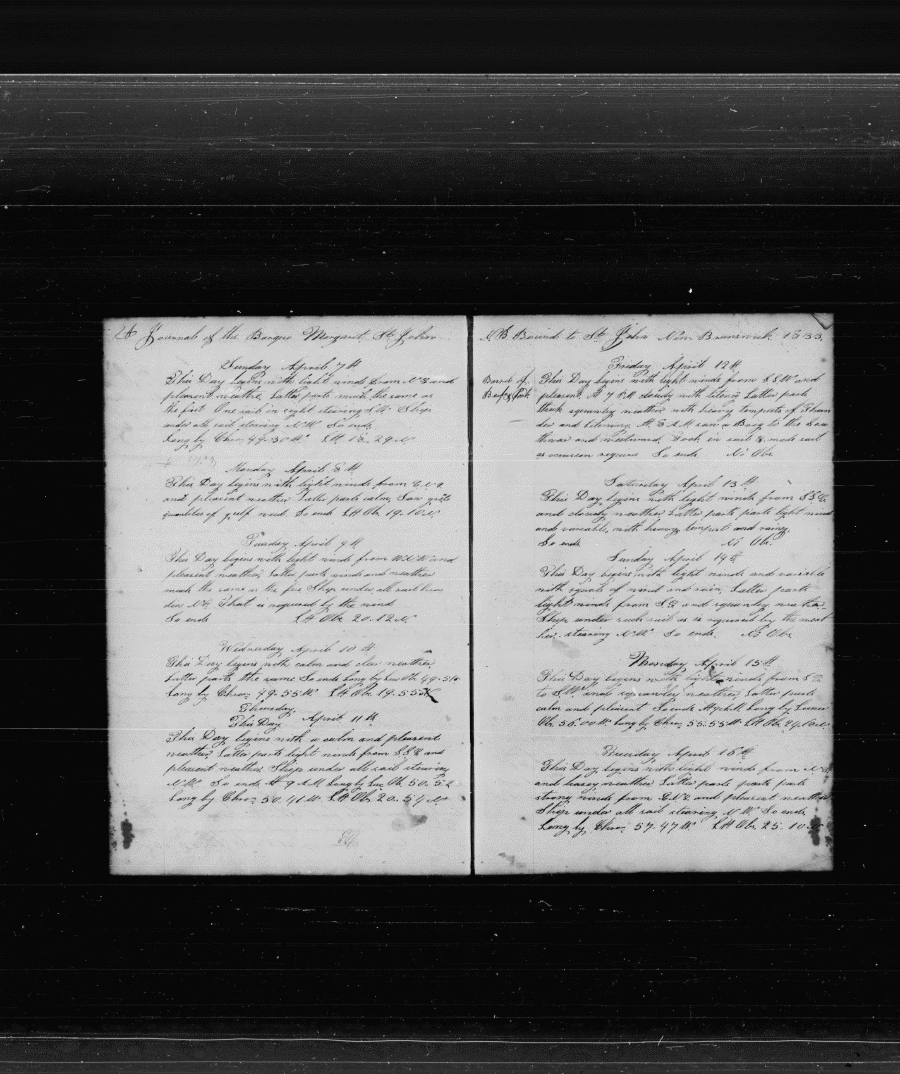 Journals of the Barque Margaret St. John
Sunday April 7th
This Day begins with light winds from N E and
pleasent weather Latter parts much the same as
the first One sail in sight stearing S W Ship
under all sail stearing N W So ends
Long by Chro 49.30 W Lt 18.29 N
Monday April 8th
This Day begins with light winds from
and pleasent weather Latter parts calm, Saw grate
quantites of gulf weed. So ends Lt Ob. 19.10 N
Tuesday April 9th
This Day begins with light winds from and
pleasent weather, Latter parts winds and weather
much the same as the first Ship under all sail
that is required by the wind
So ends Lt Ob. 20.12 N
Wednesday April 10th
This Day begins with calm and clear weather
Latter parts the same So ends Long by Ob 49.
Long by Chro. 49.55 W Lt Ob. 19.55 N
Thursday
This Day April 11th
This Day begins with a calm and pleasent
weather, Latter parts light winds from S S E and
pleasent weather Ship under all sail stearing
N W. So ends At 9 A M Long by Ob. 50.52
Long by Chro. 50.41 W Lt Ob. 20.54 N
Bound to St. John New Brunswick 1833.
Friday April 12th
Barrel of
Beef Pork
This Day begins with light winds from S S W and
pleasent, At 7 P M cloudy with Latter parts
thick squawly weather with heavy tempests of thun
der and At 8 A M saw a Barq to the Sou
thward and westward. Took in sail & made sail
as occasion requires So ends No Obs.
Saturday April 13th
This Day begins with light winds from
and cloudy weather Latter parts parts light winds
and variable, with heavy tempests and rainy
So ends No Ob.
Sunday April 14th
This Day begins with light winds and variable
with squals of wind and rain, Latter parts
light winds from S E and squawly weather
Ship under such sail as is required by the weat
her. stearing N W So ends. No Obs
Monday April 15th
This Day begins with light winds from
to S W. and squawley weather, Latter parts
calm and pleasent So ends Long by Luner
Ob. 56.00 W Long by Chro. 55.55 W Lt Ob.
Tuesday April 16th
This Day begins with light winds from
and hazey weather Latter parts parts
strong winds from E N E and pleasent weather
Ship under all sail stearing N W So ends
Long by Chro. 57.47 W Lt Ob. 25.10 N